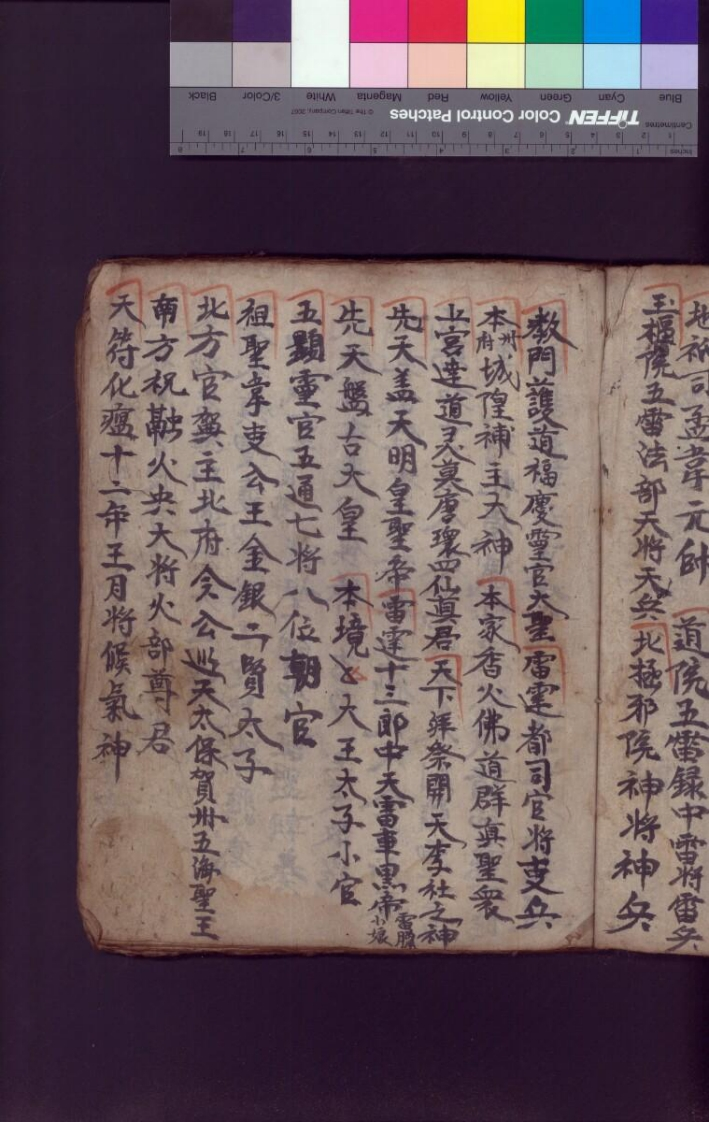 地祇司孟韋元帥 道院五雷録中雷將雷兵
玉樞院五雷法部天將天兵 北極邪院神將神兵
教門護道福慶靈官大聖 雷霆都司官將吏兵
本州府城隍補主大神 本家香火佛道群真聖衆
上宮達道 唐環四仙真君 天下 祭開天李社之神
先天盖天明皇聖帝 雷霆十三郎中天雷車黒帝 小娘
先天盤古大皇 本境 大王太子小官
五顯靈官五通七將八位朝官
祖聖 吏公王金銀二賢太子
北方官 主北府令公巡天太保賀州五海聖王
南方祝融火央大將火部尊君
天符化瘟十二年王月將候氣神
Blue Cyan Green Yellow Red Magenta White 3/Color Black
TIFFEN Color Control Patches © The Tiffen Company, 2007
Centimetres 1 2 3 4 5 6 7 8 9 10 11 12 13 14 15 16 17 18 19
Inches 1 2 3 4 5 6 7 8